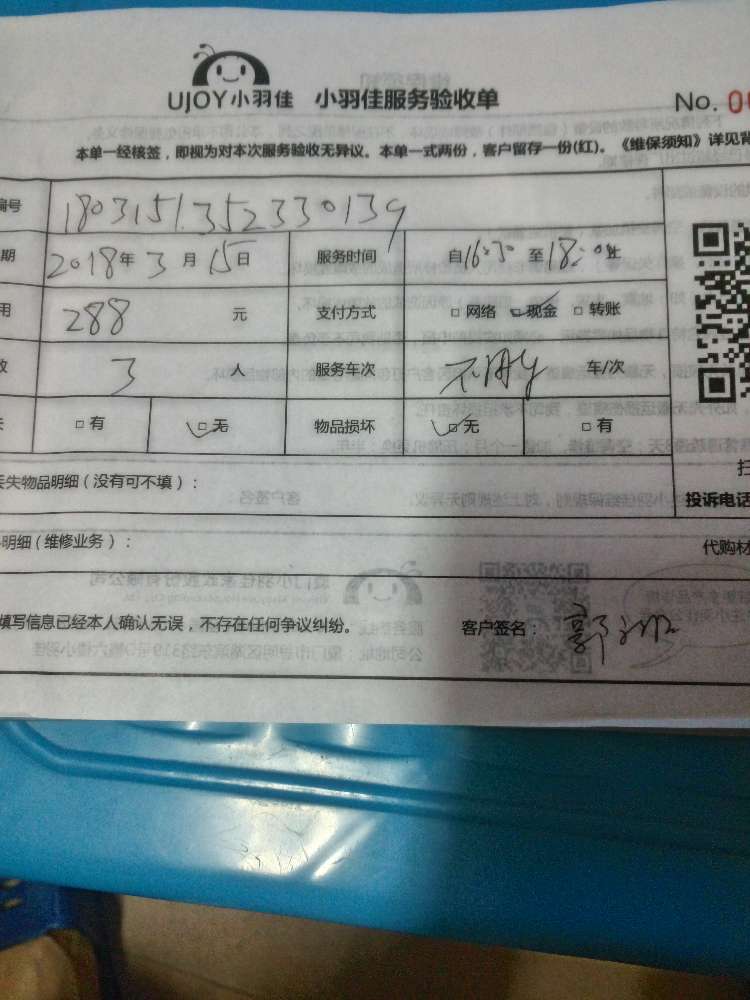 UJOY小羽佳 小羽佳服务验收单 No. 00
本单一经核签，即视为对本次服务验收无异议。本单一式两份，客户留存一份(红)。《维保须知》详见背
编号 1803151352330139
期 2018年3月15日 服务时间 自16:30至18:0
用 288 元 支付方式 □网络 □现金 □转账
3 人 服务车次 车/次
□有 □无 物品损坏 □无 □有
失物品明细（没有可不填）：
投诉电话
明细（维修业务）： 代购材
填写信息已经本人确认无误，不存在任何争议纠纷。 客户签名： 郭